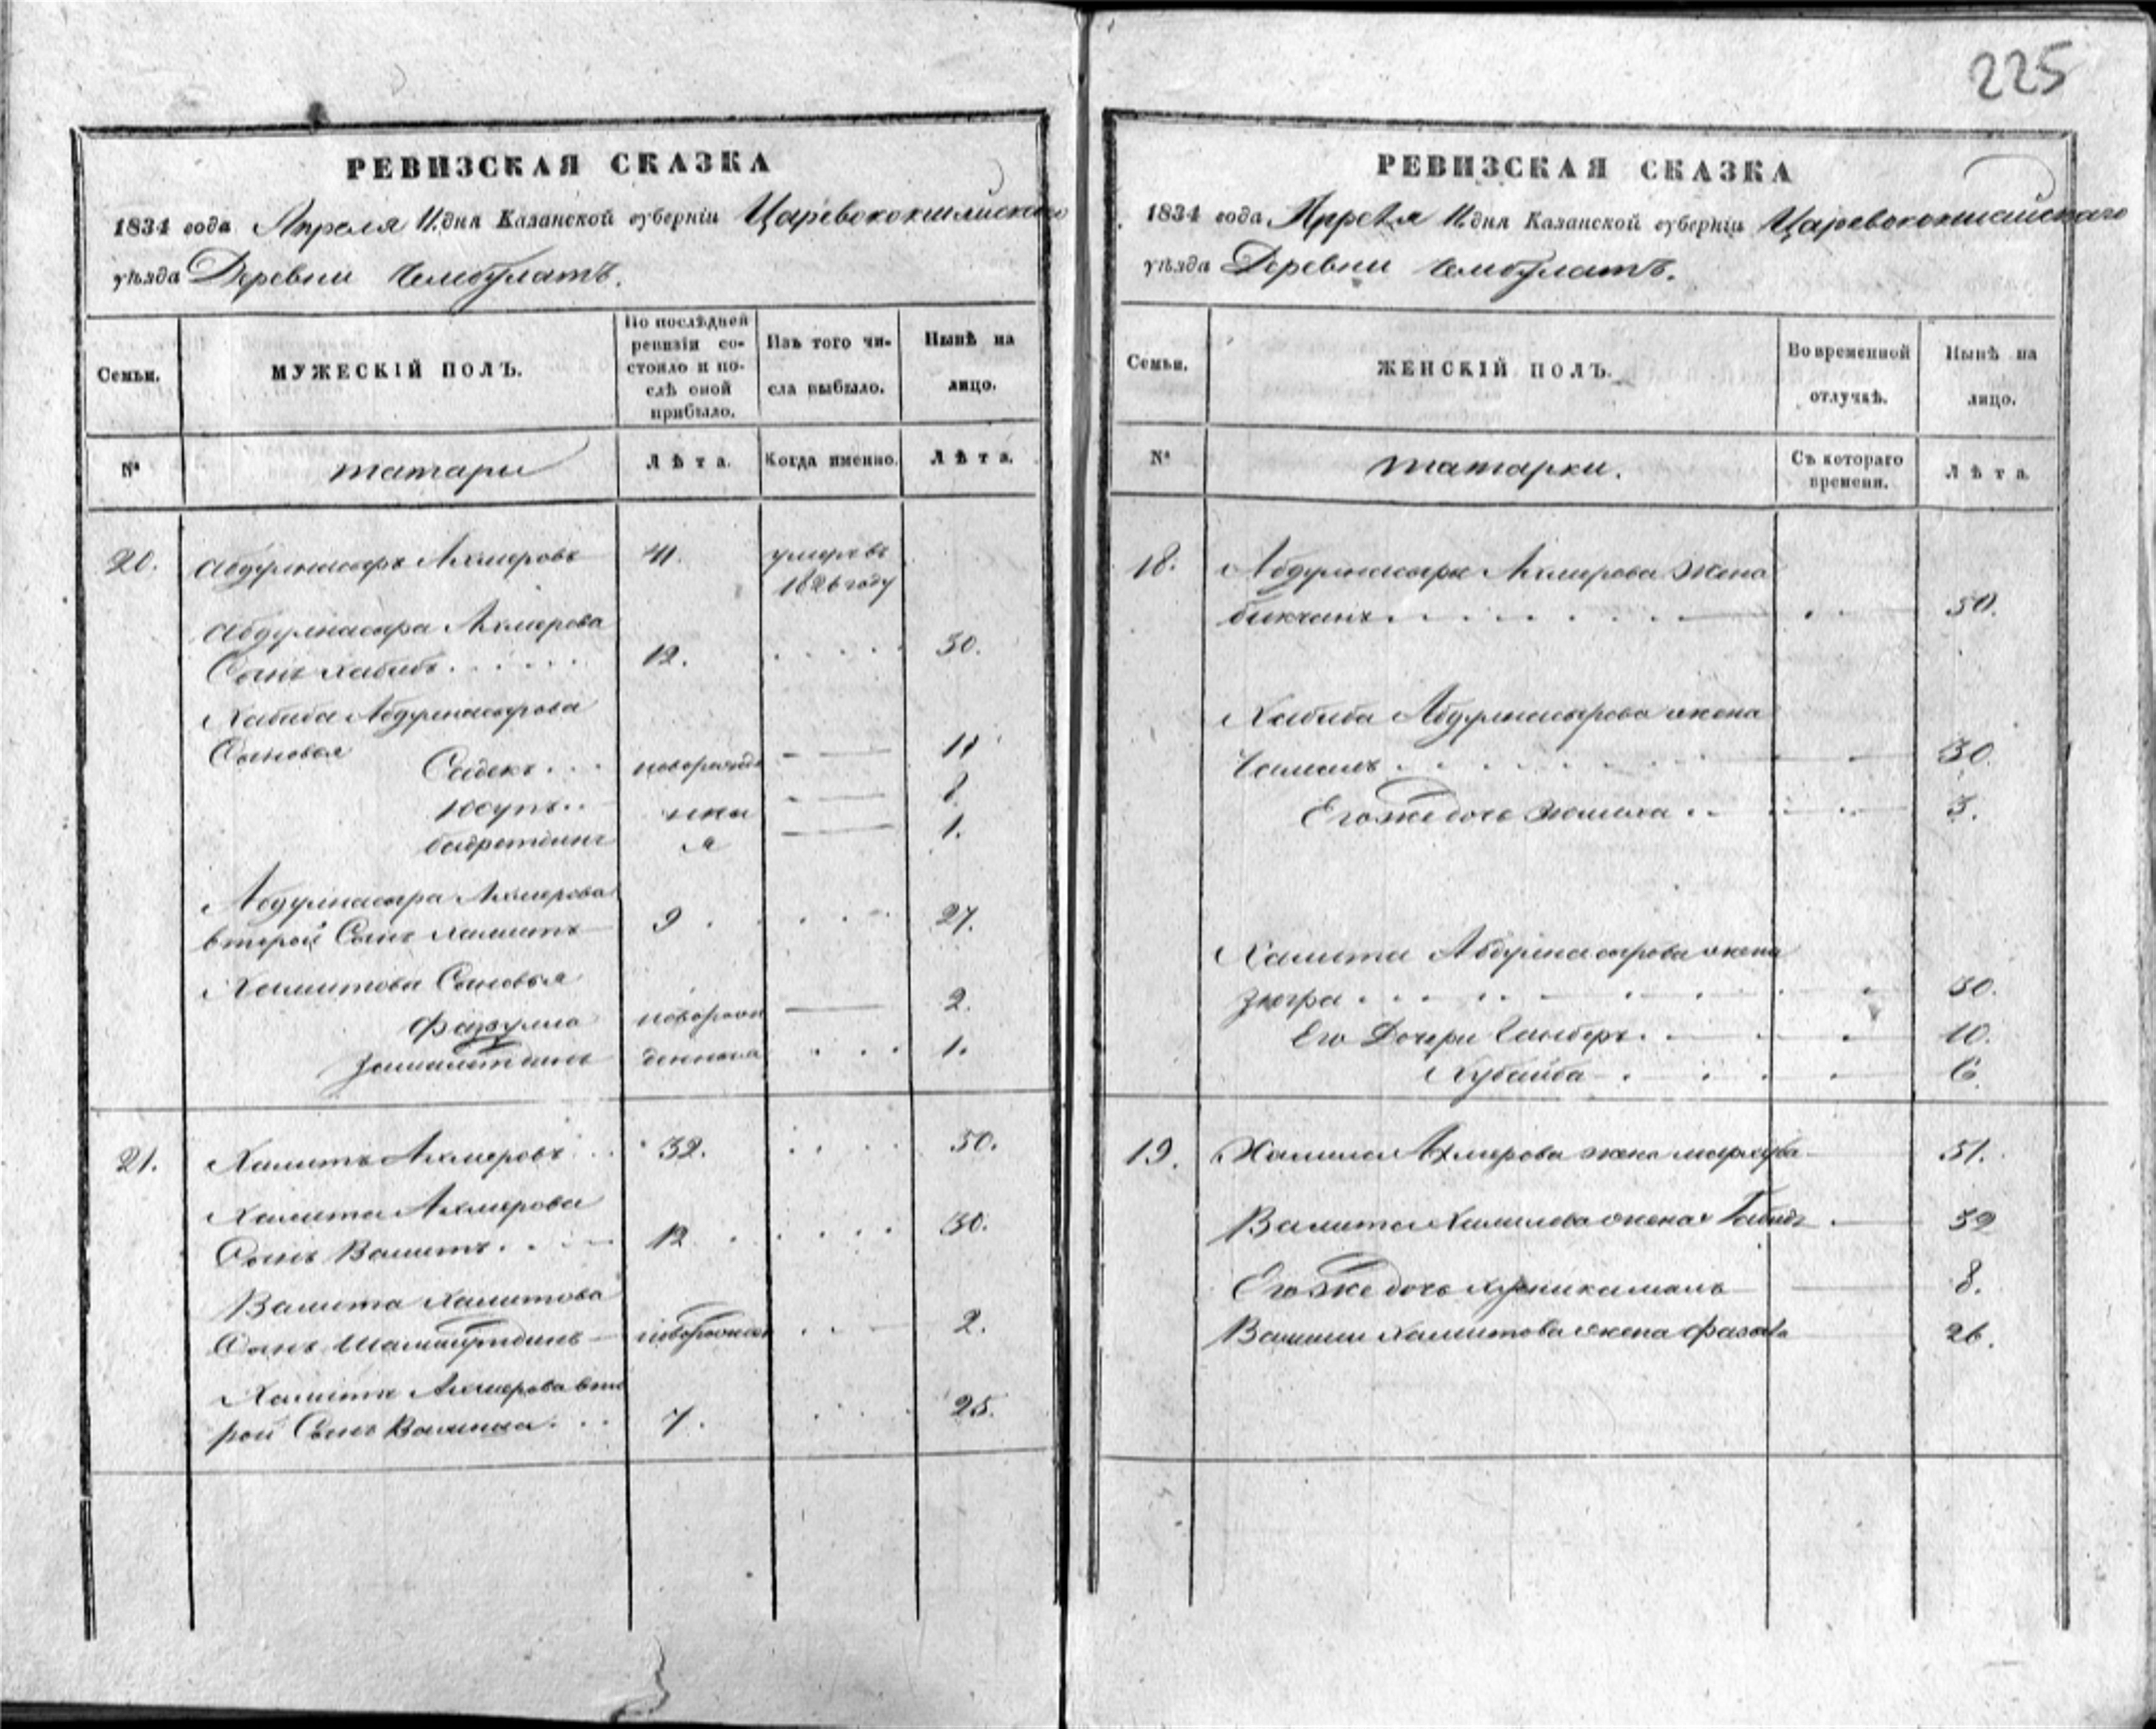 225
РЕВИЗСКАЯ СКАЗКА
1834 года Апреля 11 дня Казанской губерніи Царевококшайскаго
уѣзда Деревни Чембулатъ.
Семьи.
МУЖЕСКІЙ ПОЛЪ.
По послѣдней
ревизіи со-
стояло и по-
слѣ оной
прибыло.
Изъ того чи-
сла выбыло.
Нынѣ на
лицо.
№
татары
Лѣта.
Когда именно.
Лѣта.
20. Абдулнасыръ Ахмеровъ 41. умеръ въ
1826 году
Абдулнасыра Ахмерова
Сынъ Хабибъ 12. 30.
Хабиба Абдулнасырова
Сыновья
Садекъ новорожде 11
Юсупъ нны 8.
Бадретдинъ я 1.
Абдулнасыра Ахмерова
второй Сынъ Хамитъ 9 27.
Хамитова Сыновья
Фазулла новорож 2.
денныя 1.
21. Хамитъ Ахмеровъ 32. 50.
Хамита Ахмерова
Сынъ Вамитъ 12 30.
Вамита Хамитова
Сынъ 2.
Хамита Ахмерова вто
рой Сынъ 7. 25.
РЕВИЗСКАЯ СКАЗКА
1834 года Апреля 11 дня Казанской губерніи Царевококшайскаго
уѣзда Деревни Чембулатъ.
Семьи.
ЖЕНСКІЙ ПОЛЪ.
Во временной
отлучкѣ.
Нынѣ на
лицо.
№
татарки.
Съ котораго
времени.
Лѣта.
18. Абдулнасыра Ахмерова жена
50.
Хабиба Абдулнасырова жена
30.
Его же дочь 3.
Хамита Абдулнасырова жена
Зюгра 30.
Его Дочери 10.
Хубайба 6.
19. Ахмерова жена 51.
Вамита жена 32
Его же дочь 8.
Хамитова жена 26.